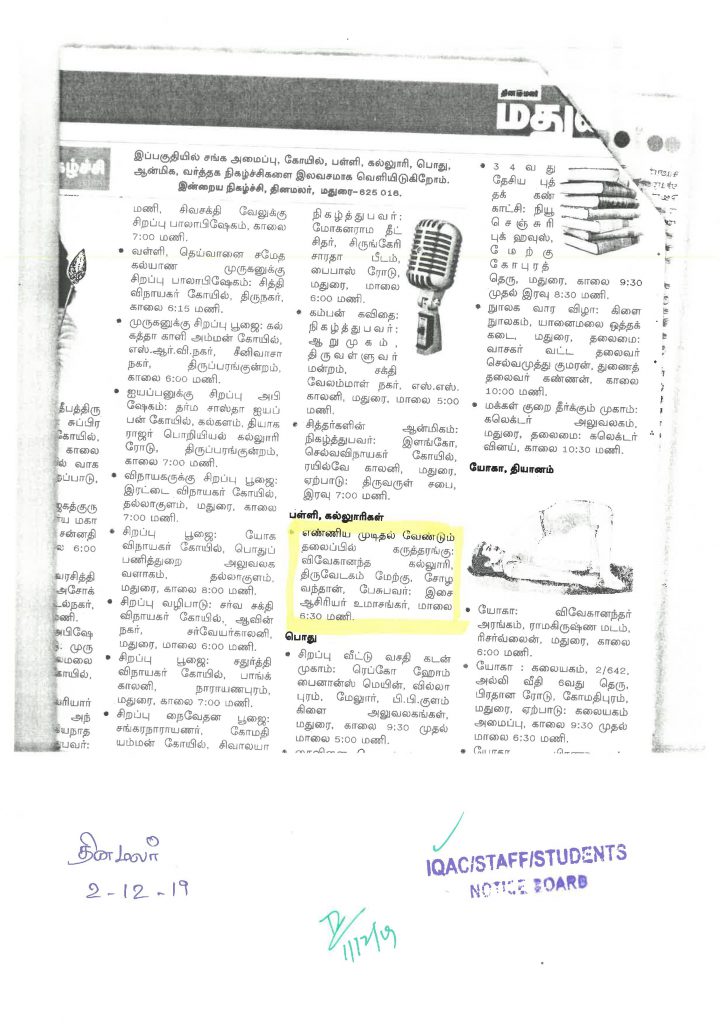 தினமலர்
மதுரை
இப்பகுதியில் சங்க அமைப்பு, கோயில், பள்ளி, கல்லூரி, பொது,
ஆன்மிக, வர்த்தக நிகழ்ச்சிகளை இலவசமாக வெளியிடுகிறோம்.
இன்றைய நிகழ்ச்சி, தினமலர், மதுரை-625 016.
கழ்ச்சி
தீபத்திரு
சுப்பிர
கோயில்,
காலை
ல் வாக
றப்பாடு,
ஜகத்குரு
ய மகா
சன்னதி
6:00
வரசித்தி
அசோக்
டல்நகர்,
அபிஷே
. முரு
லமலை
காயில்,
பரியார்
அந்
யநாத
பவர்:
மணி, சிவசக்தி வேலுக்கு
சிறப்பு பாலாபிஷேகம், காலை
7:00 மணி.
• வள்ளி, தெய்வானை சமேத
கல்யாண முருகனுக்கு
சிறப்பு பாலாபிஷேகம்: சித்தி
விநாயகர் கோயில், திருநகர்,
காலை 6:15 மணி.
• முருகனுக்கு சிறப்பு பூஜை: கல்
கத்தா காளி அம்மன் கோயில்,
எஸ்.ஆர்.வி.நகர், சீனிவாசா
நகர், திருப்பரங்குன்றம்,
காலை 6:00 மணி.
• ஐயப்பனுக்கு சிறப்பு அபி
ஷேகம்: தர்ம சாஸ்தா ஐயப்
பன் கோயில், கல்களம், தியாக
ராஜர் பொறியியல் கல்லூரி
ரோடு, திருப்பரங்குன்றம்,
காலை 7:00 மணி.
• விநாயகருக்கு சிறப்பு பூஜை:
இரட்டை விநாயகர் கோயில்,
தல்லாகுளம், மதுரை, காலை
7:00 மணி.
• சிறப்பு பூஜை: யோக
விநாயகர் கோயில், பொதுப்
பணித்துறை அலுவலக
வளாகம், தல்லாகுளம்,
மதுரை, காலை 8:00 மணி.
• சிறப்பு வழிபாடு: சர்வ சக்தி
விநாயகர் கோயில், ஆவின்
நகர், சர்வேயர்காலனி,
மதுரை, மாலை 6:00 மணி.
• சிறப்பு பூஜை: சதுர்த்தி
விநாயகர் கோயில், பாங்க்
காலனி, நாராயணபுரம்,
மதுரை, காலை 7:00 மணி.
• சிறப்பு நைவேதன பூஜை:
சங்கரநாராயணர், கோமதி
யம்மன் கோயில், சிவாலயா
நிகழ்த்துபவர்:
மோகனராம தீட்
சிதர், சிருங்கேரி
சாரதா பீடம்,
பைபாஸ் ரோடு,
மதுரை, மாலை
6:00 மணி.
• கம்பன் கவிதை:
நிகழ்த்துபவர்:
ஆறுமுகம்,
திருவள்ளுவர்
மன்றம், சக்தி
வேலம்மாள் நகர், எஸ்.எஸ்.
காலனி, மதுரை, மாலை 5:00
மணி.
• சித்தர்களின் ஆன்மிகம்:
நிகழ்த்துபவர்: இளங்கோ,
செல்வவிநாயகர் கோயில்,
ரயில்வே காலனி, மதுரை,
ஏற்பாடு: திருவருள் சபை,
இரவு 7:00 மணி.
பள்ளி, கல்லூரிகள்
• எண்ணிய முடிதல் வேண்டும்
தலைப்பில் கருத்தரங்கு:
விவேகானந்த கல்லூரி,
திருவேடகம் மேற்கு, சோழ
வந்தான், பேசுபவர்: இசை
ஆசிரியர் உமாசங்கர், மாலை
6:30 மணி.
பொது
• சிறப்பு வீட்டு வசதி கடன்
முகாம்: ரெப்கோ ஹோம்
பைனான்ஸ் மெயின், வில்லா
புரம், மேலூர், பி.பி.குளம்
கிளை அலுவலகங்கள்,
மதுரை, காலை 9:30 முதல்
மாலை 5:00 மணி.
• 34வது
தேசிய புத்
தகக் கண்
காட்சி: நியூ
செஞ்சுரி
புக் ஹவுஸ்,
மேற்கு
கோபுரத்
தெரு, மதுரை, காலை 9:30
முதல் இரவு 8:30 மணி.
• நுாலக வார விழா: கிளை
நுாலகம், யானைமலை ஒத்தக்
கடை, மதுரை, தலைமை:
வாசகர் வட்ட தலைவர்
செல்வமுத்து குமரன், துணைத்
தலைவர் கண்ணன், காலை
10:00 மணி.
• மக்கள் குறை தீர்க்கும் முகாம்:
கலெக்டர் அலுவலகம்,
மதுரை, தலைமை: கலெக்டர்
வினய், காலை 10:30 மணி.
யோகா, தியானம்
• யோகா: விவேகானந்தர்
அரங்கம், ராமகிருஷ்ண மடம்,
ரிசர்வ்லைன், மதுரை, காலை
6:00 மணி.
• யோகா : கலையகம், 2/642,
அல்லி வீதி 6வது தெரு,
பிரதான ரோடு, கோமதிபுரம்,
மதுரை, ஏற்பாடு: கலையகம்
அமைப்பு, காலை 9:30 முதல்
மாலை 6:30 மணி.
தினமலர்
2-12-19
IQAC/STAFF/STUDENTS
NOTICE BOARD
1/12/19